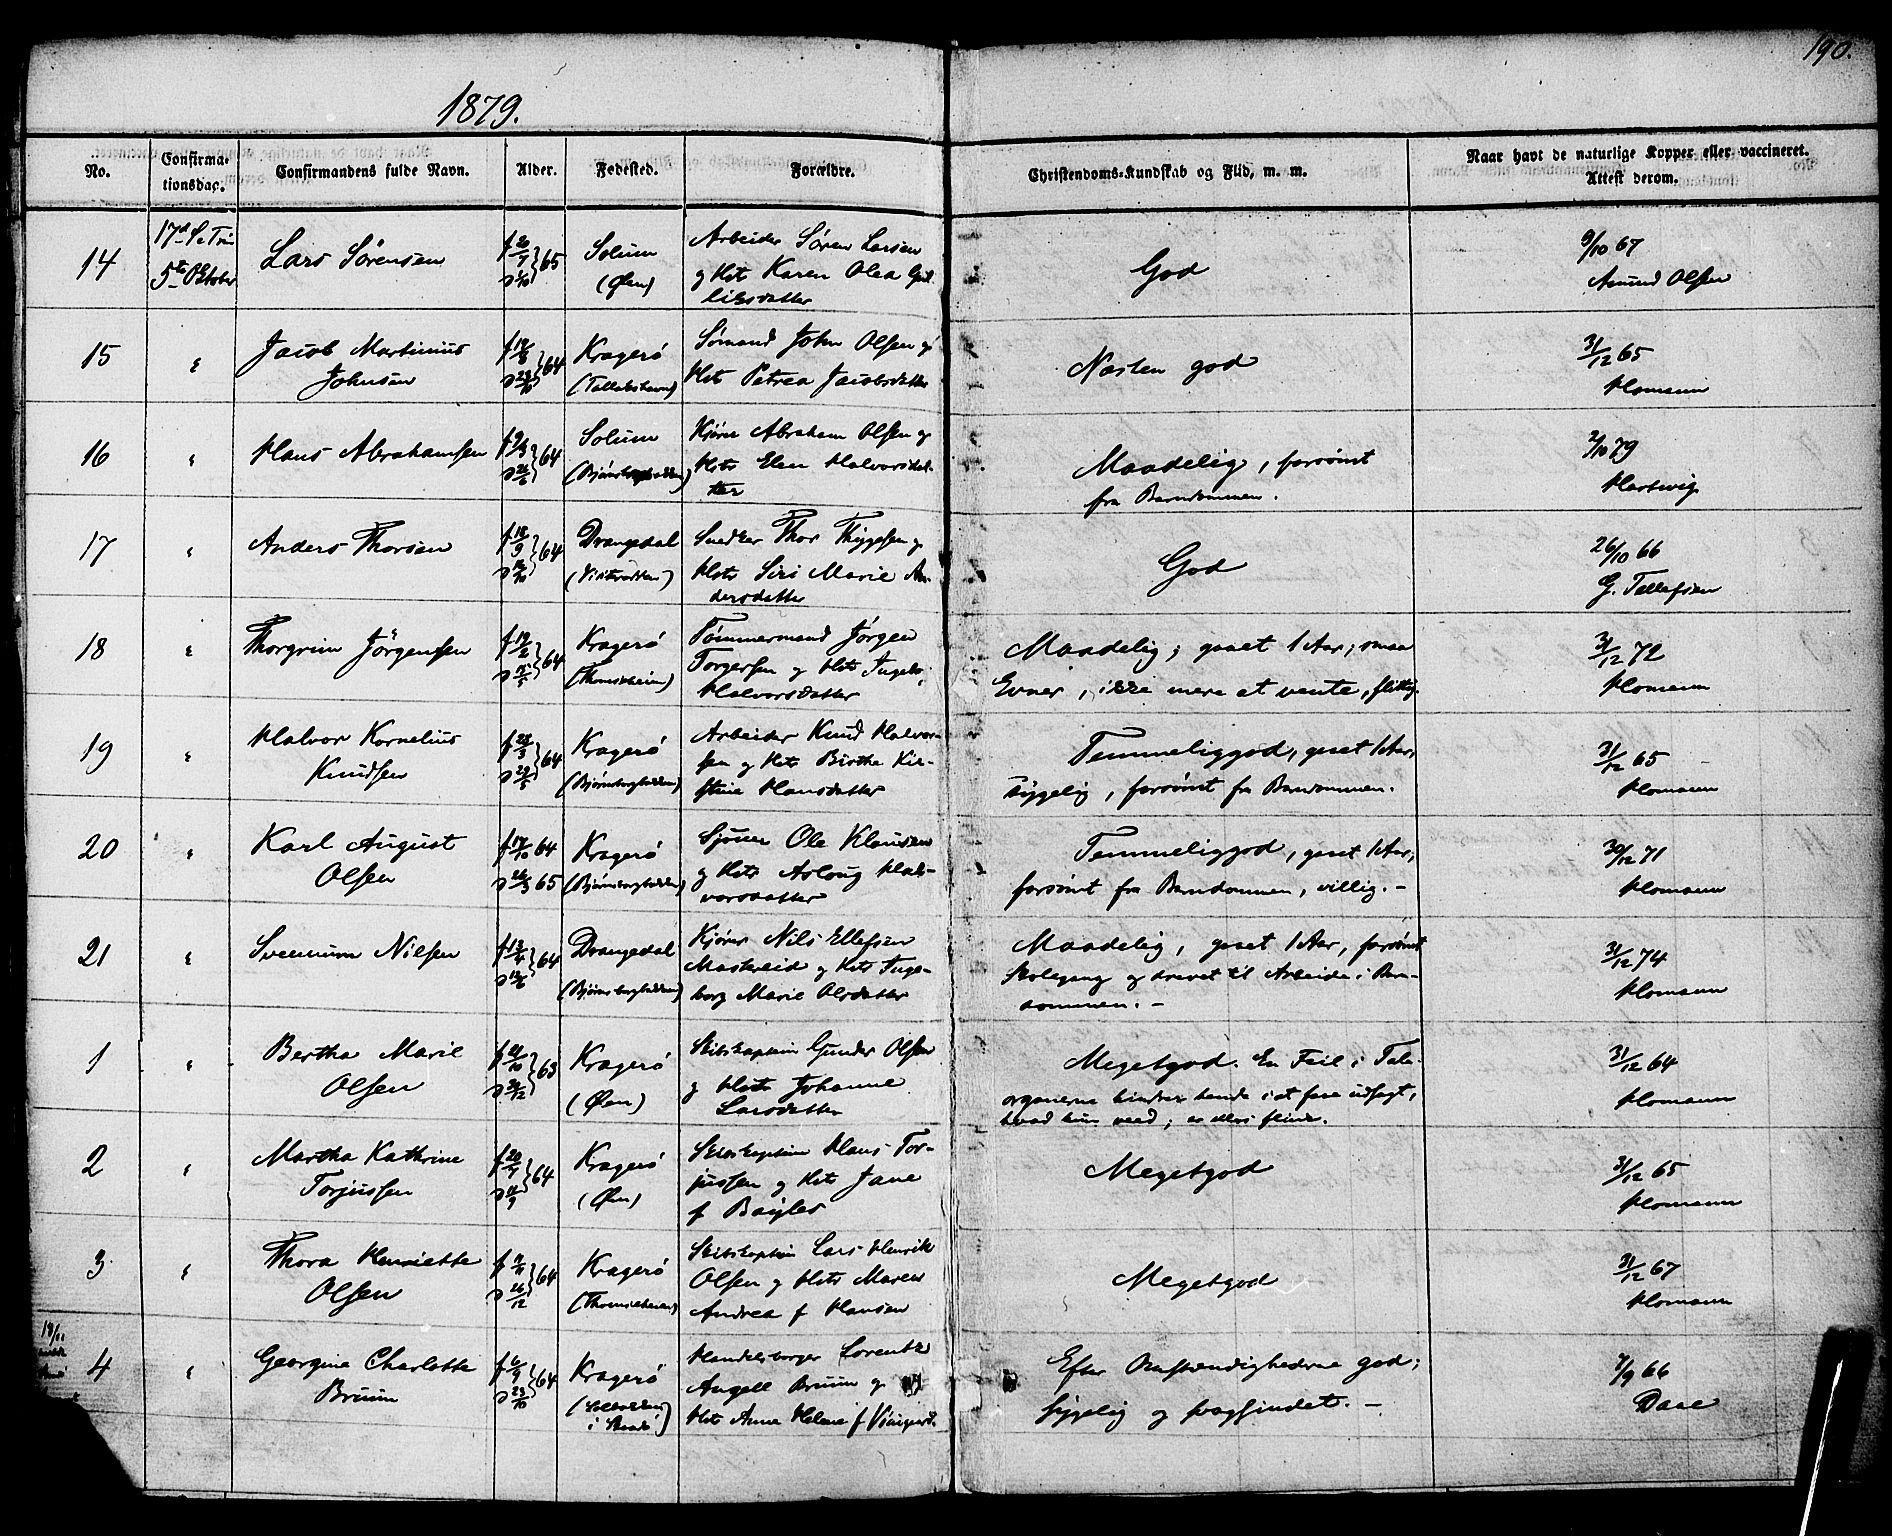 190.
1879.
No.
Confirma-
tionsdag.
Confirmandens fulde Navn.
Alder.
Fødested.
Forældre.
Christendoms-Kundskab og Flid, m. m.
Naar havt de naturlige Kopper eller vaccineret.
Attest derom.
14
17d S. e Trin
5te Oktober
Lars Sörensen
f 20/7 } 65
Solum
(Øen)
Arbeider Søren Larsen
og Hst Karen Olea
God
9/10 67
Amund Olsen
15
"
Jacob Martinius
Johnsen
f 19/8 } 64
Kragerö
Sømand John Olsen og
Hst Petrea Jacobsdatter
Næsten god
31/12 65
Homann
16
"
Hans Abrahamsen
f 9/3 } 64
Solum
Kjörer Abraham Olsen og
Hst Elen Halvorsdat-
ter
Maadelig, forsömt
fra Barndommen.
2/10 79
Hartvig
17
"
Anders Thorsen
f 18/9 } 64
Drangedal
Snedker Thor Thygesen og
Hst Siri Marie An-
dersdatter
God
26/10 66
G. Tellefsen
18
"
Thorgrim Jörgensen
f 19/2 } 64
Kragerö
Tømmermand Jørgen
Torgersen og Hst Ingeb.
Halvorsdatter
Maadelig; gaaet 1 Aar; smaa
Evner, ikke mere at vente, flittig.
31/12 72
Homann
19
"
Halvor Kornelius
Knudsen
f 28/3 } 64
d 29/5
Kragerö
(Bjørnsborgbakken)
Arbeider Knud Halvor-
sen og Hst Birthe Kir-
stine Hansdatter
Temmeliggod, gaaet 1 Aar,
sygelig, forsömt fra Barndommen.
31/12 65
Homann
20
"
Karl August
Olsen
f 17/10 64
d 26/3 65
Kragerö
(Bjørnsborgbakken)
Sjöner Ole Klausen
og Hst Aslaug Hal-
vorsdatter
Temmeliggod, gaaet 1 Aar,
forsömt fra Barndommen, villig. -
30/12 71
Homann
21
"
Svennum Nilsen
f 13/4 } 64
d 12/6
Drangedal
(Bjørnsborgbakken)
Kjörer Nils Ellefsen
Mastereid og Hst Inge-
borg Marie Olsdatter
Maadelig, gaaet 1 Aar, forsömt
Skolegang og drevet til Arbeide i Barn-
dommen. -
31/12 74
Homann
1
"
Bertha Marie
Olsen
f 21/10 } 63
Kragerö
(Øen)
Skibskaptein Gunder Olsen
og Hst Johanne
Larsdatter
Megetgod. En Feil i Tale-
organerne hindrer hende i at faa udsagt,
hvad hun veed; er ellers flink.
31/12 64
Homann
2
"
Martha Kathrine
Torjussen
f 20/7 } 64
Kragerö
(Øen)
Skibskaptein Hans Tor-
jussen og Hst Jane
f Bayles
Megetgod
31/12 65
Homann
3
"
Thora Henriette
Olsen
f 11/11 } 64
d 26/12
Kragerö
Skibskaptein Lars Henrik
Olsen og Hst Maren
Andrea f Hansen
Megetgod
31/12 67
Homann
19/11
4
"
Georgine Charlotte
Bruun
f 6/9 } 64
d 23/10
Kragerö
Handelsborger Lorentz
Angell Bruun og
Hst Anna Helene f Viingaard.
Efter Omstændighederne god;
sygelig og svagsindet. -
7/9 66
Daae